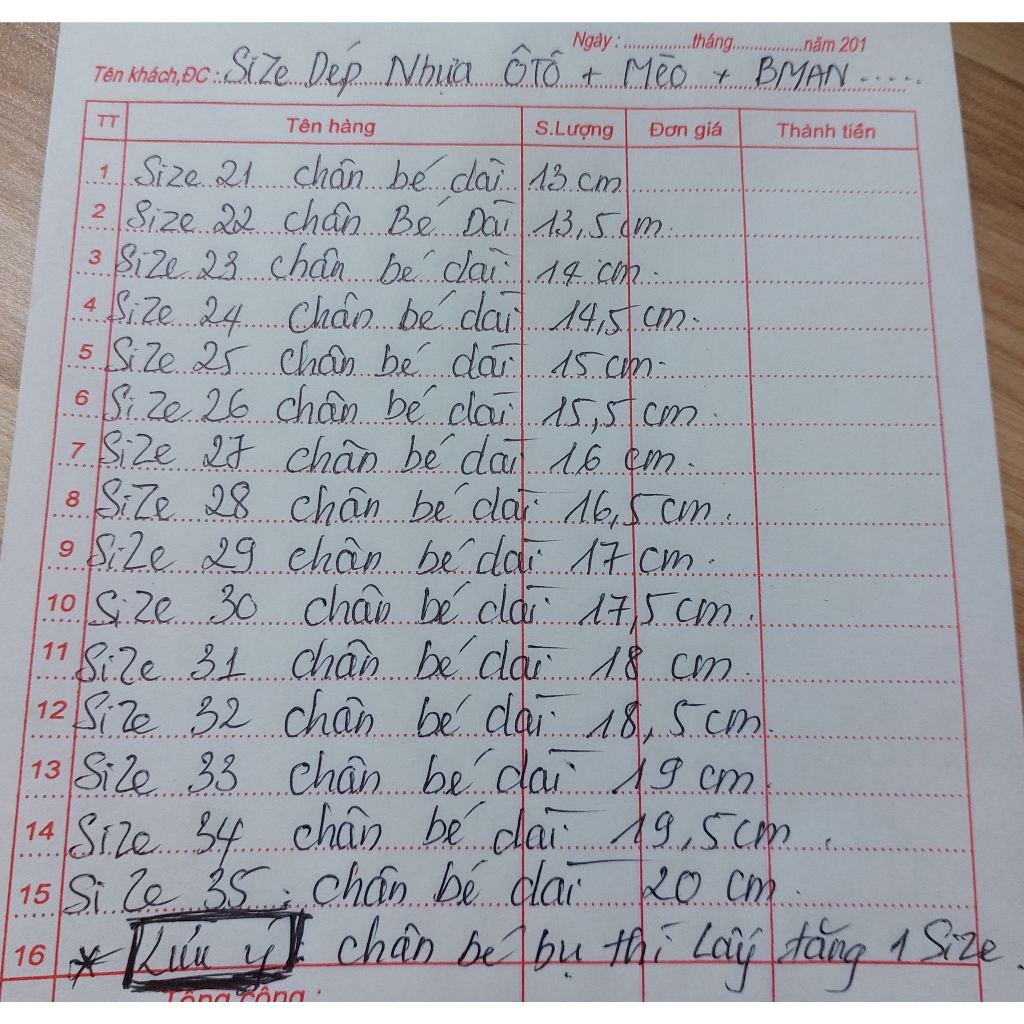 Ngày : ..............tháng..............năm 201
Tên khách,ĐC : Size Dép Nhựa ÔTÔ + Mèo + BMAN......
TT Tên hàng S.Lượng Đơn giá Thành tiền
1 Size 21 chân bé dài 13 cm
2 Size 22 chân Bé Dài 13,5 cm.
3 Size 23 chân bé dài 14 cm.
4 Size 24 chân bé dài 14,5 cm.
5 Size 25 chân bé dài 15 cm.
6 Size 26 chân bé dài 15,5 cm.
7 Size 27 chân bé dài 16 cm.
8 Size 28 chân bé dài 16,5 cm.
9 Size 29 chân bé dài 17 cm.
10 Size 30 chân bé dài 17,5 cm.
11 Size 31 chân bé dài 18 cm.
12 Size 32 chân bé dài 18,5 cm.
13 Size 33 chân bé dài 19 cm.
14 Size 34 chân bé dài 19,5 cm.
15 Size 35 : chân bé dài 20 cm.
16 * Lưu ý : chân bé bụ thì Lấy tăng 1 Size.
Tổng cộng :